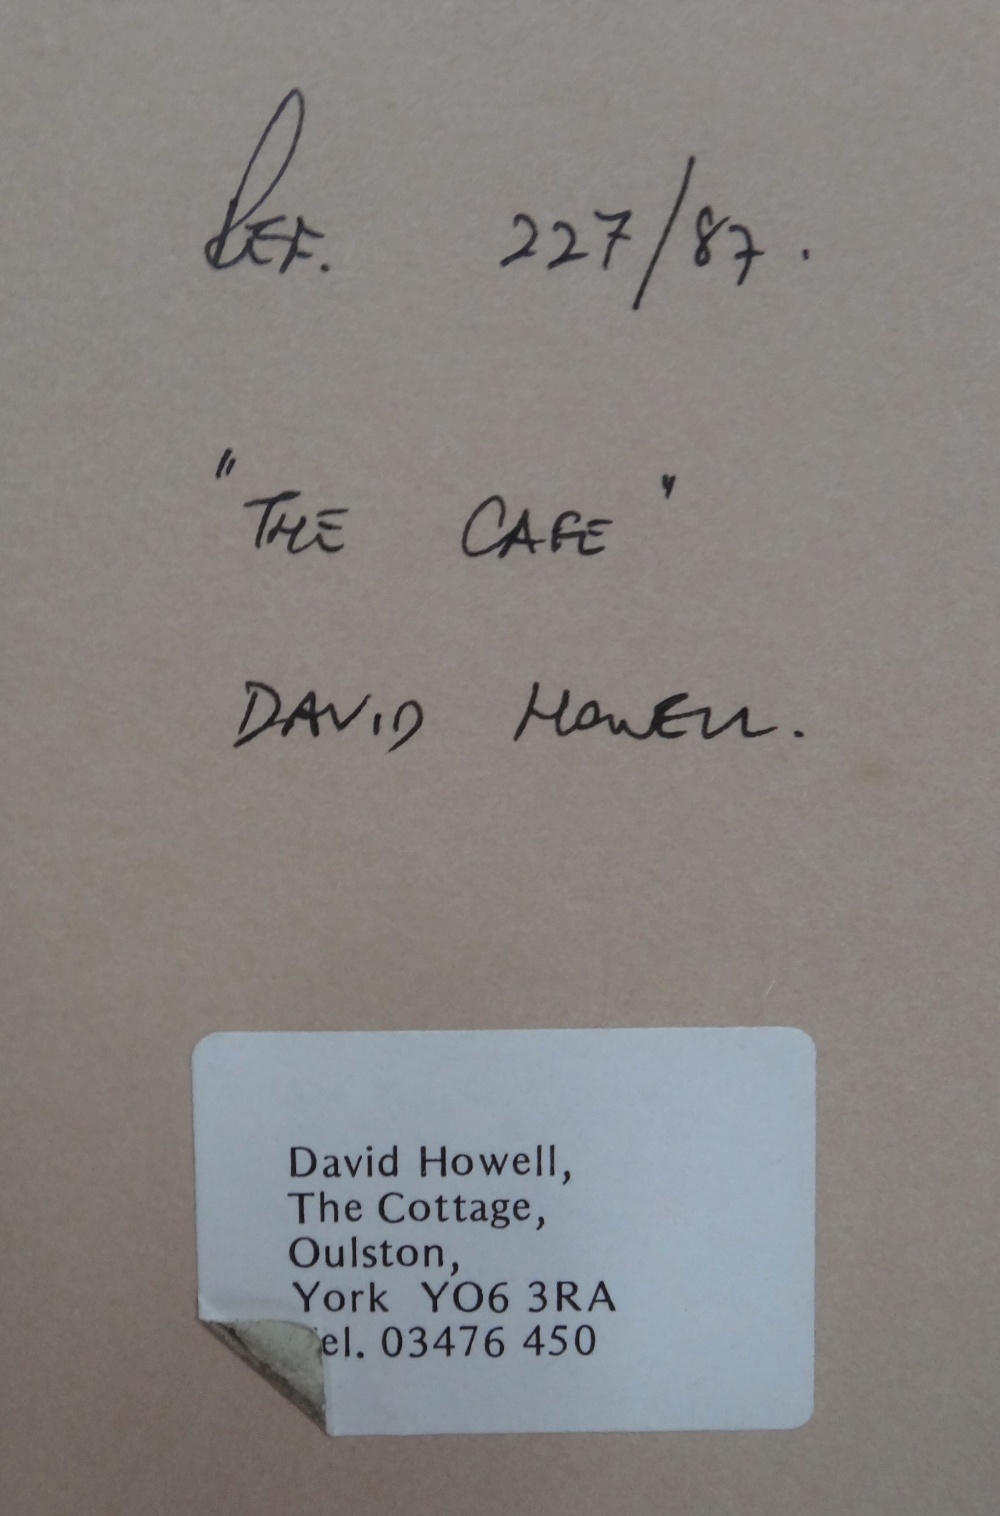 REF. 227/87.
"THE CAFE"
DAVID HOWELL.
David Howell,
The Cottage,
Oulston,
York YO6 3RA
el. 03476 450